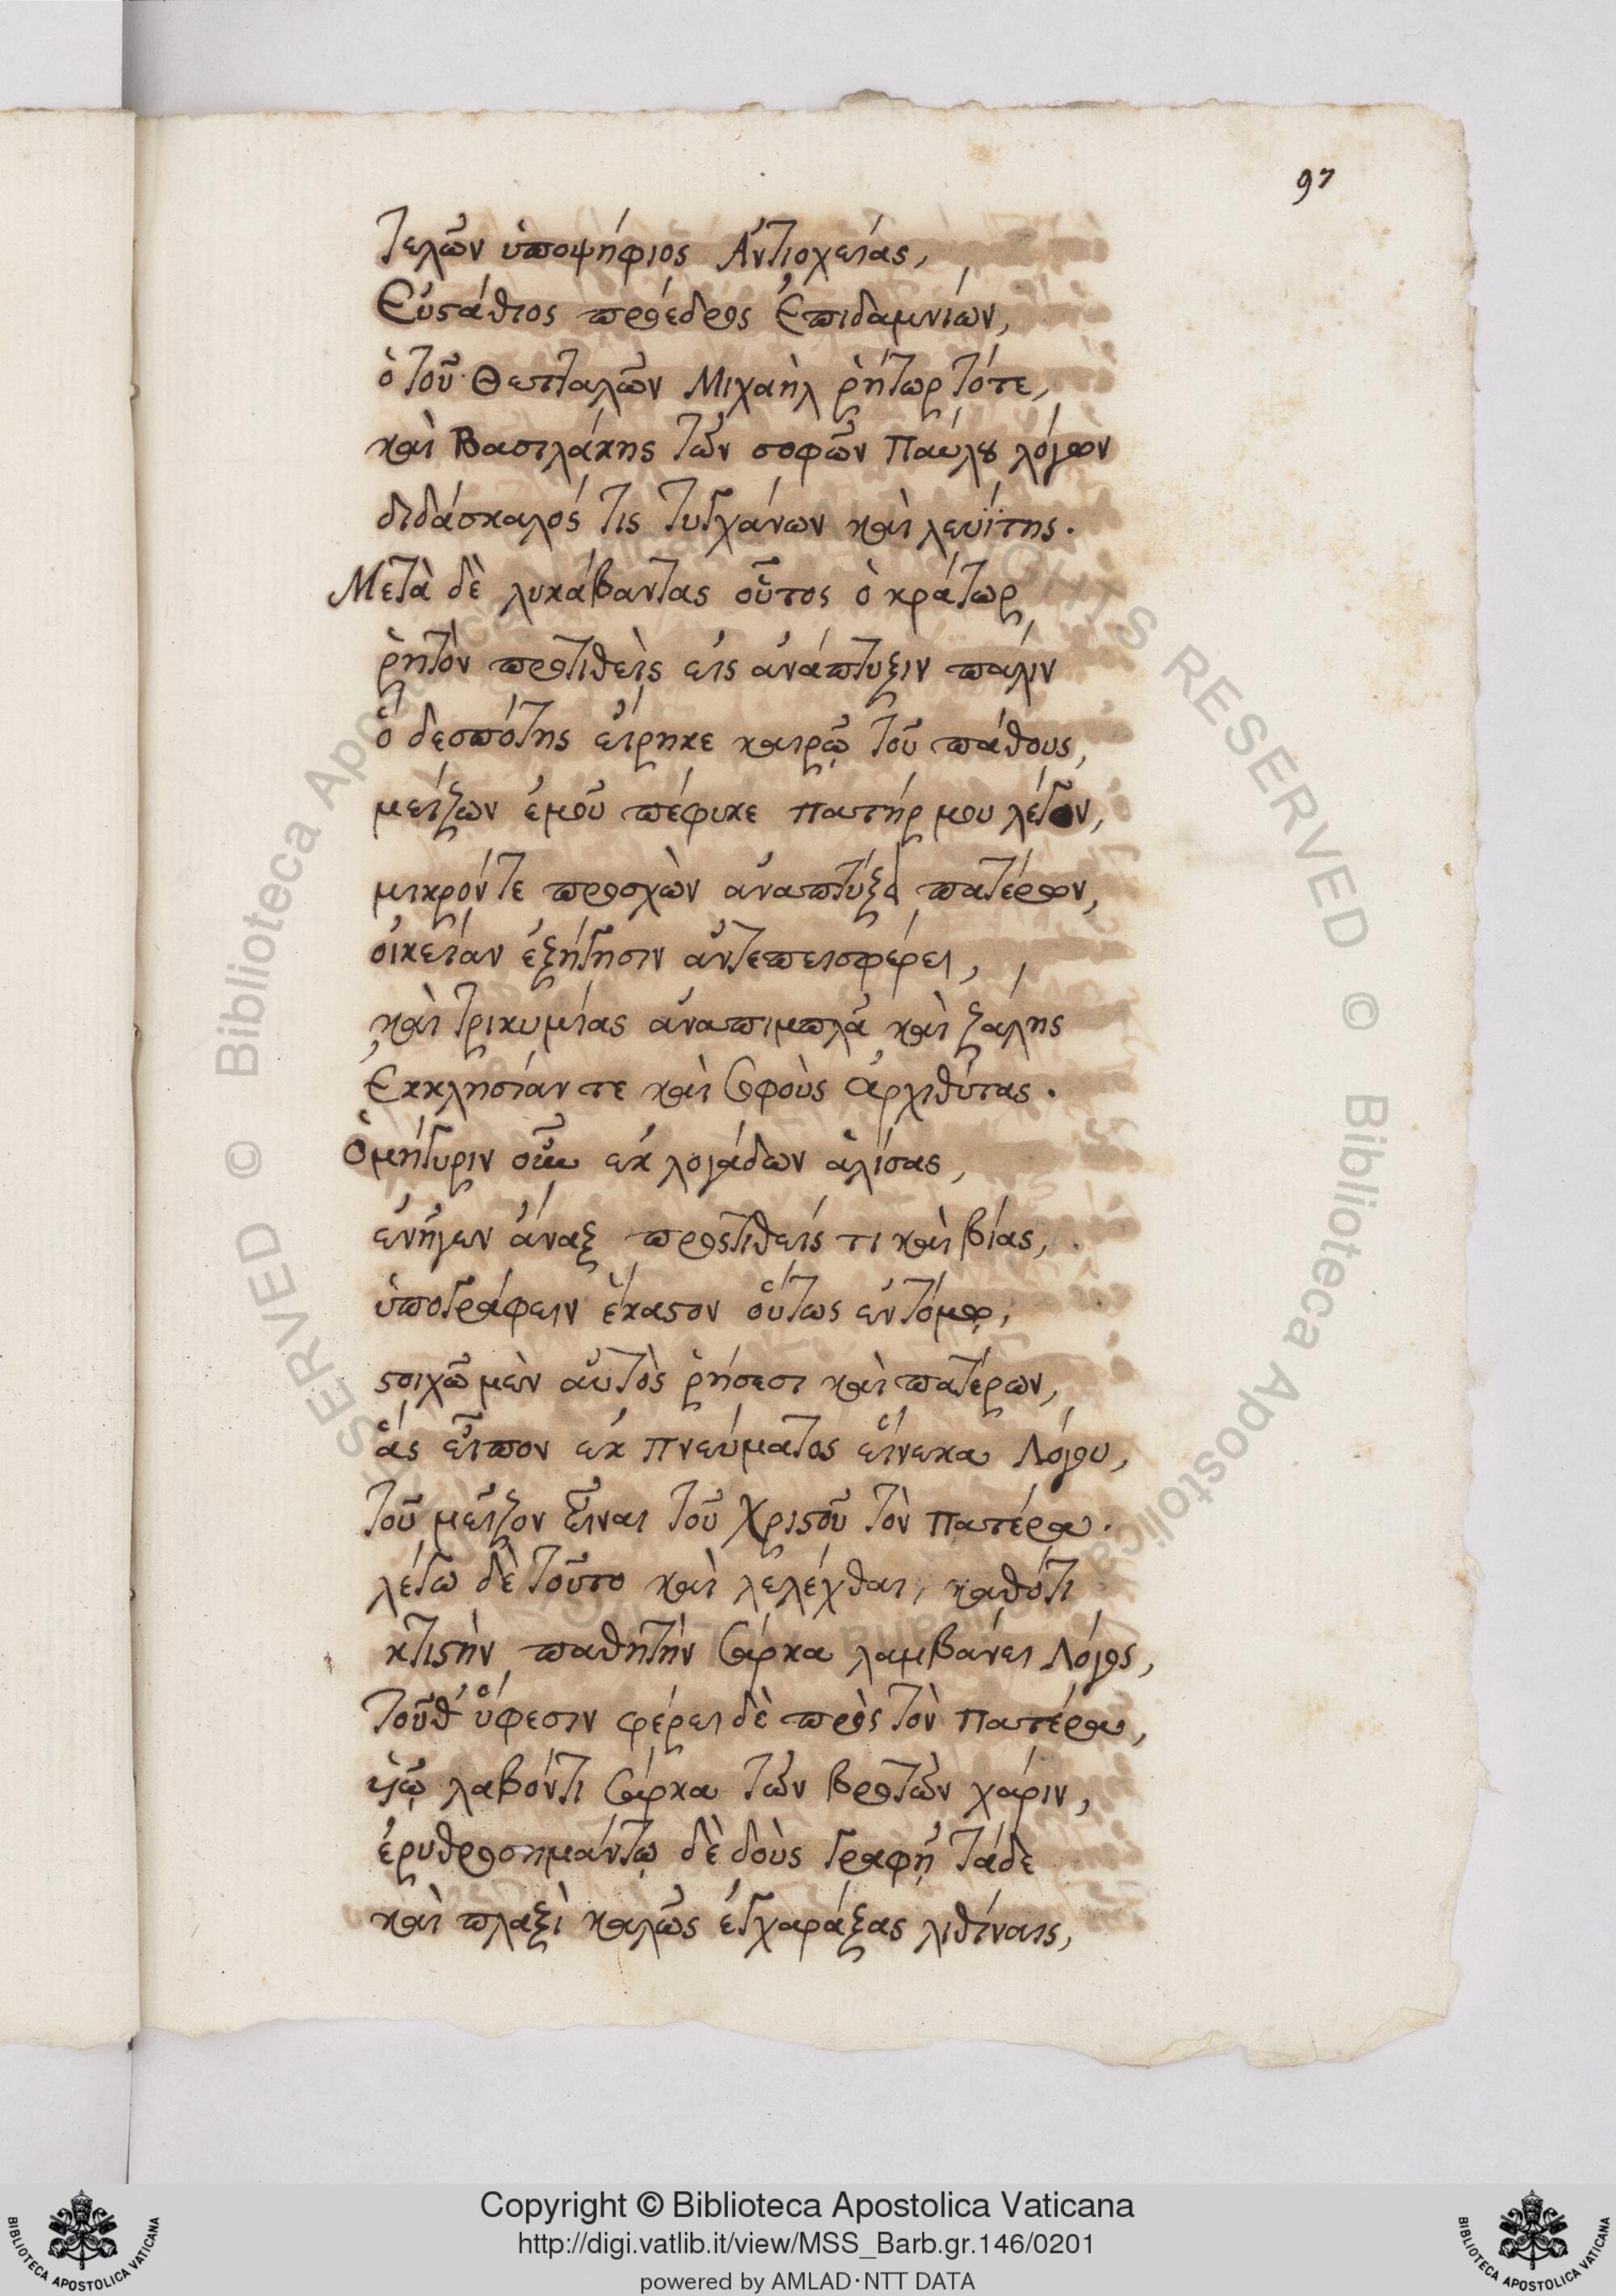 97
τελῶν ὑποψήφιος Ἀντιοχείας,
Εὐστάθιος πρόεδρος Ἐπιδαμνίων,
ὁ τοῦ Θετταλῶν Μιχαὴλ ῥήτωρ τότε,
καὶ Βασιλάκης τῶν σοφῶν Παύλου λόγων
διδάσκαλός τις τυγχάνων καὶ λευΐτης.
Μετὰ δὲ λυκάβαντας οὗτος ὁ κράτωρ
ῥητὸν προτιθεὶς εἰς ἀνάπτυξιν πάλιν
ὁ δεσπότης εἴρηκε καιρῷ τοῦ πάθους,
μείζων ἐμοῦ πέφυκε Πατήρ μου λέγων,
μικρόν τε προσχὼν ἀναπτύξει πατέρων,
οἰκείαν ἐξήγησιν ἀντεπεισφέρει,
καὶ τρικυμίας ἀναπιμπλᾷ καὶ ζάλης
Ἐκκλησίαν τε καὶ σοφοὺς ἀρχιθύτας.
Ὁμήγυριν οὖν ἐκ λογάδων ἁλίσας,
ἐνῆγεν ἄναξ προστιθείς τι καὶ βίας,
ὑπογράφειν ἕκαστον οὕτως ἐν τόμῳ,
στοιχῶ μὲν αὐτὸς ῥήσεσι καὶ πατέρων,
ἃς εἶπον ἐκ Πνεύματος εἵνεκα Λόγου,
τοῦ μεῖζον εἶναι τοῦ Χριστοῦ τὸν Πατέρα.
λέγω δὲ τοῦτο καὶ λελέχθαι, καθότι
κτιστὴν παθητὴν σάρκα λαμβάνει Λόγος,
τοῦθ' ὕφεσιν φέρει δὲ πρὸς τὸν Πατέρα,
υἱῷ λαβόντι σάρκα τῶν βροτῶν χάριν,
ἐρυθροσημάντῳ δὲ δοὺς γραφῇ τάδε
καὶ πλαξὶ καλῶς ἐγχαράξας λιθίναις,
Copyright © Biblioteca Apostolica Vaticana
http://digi.vatlib.it/view/MSS_Barb.gr.146/0201
powered by AMLAD·NTT DATA